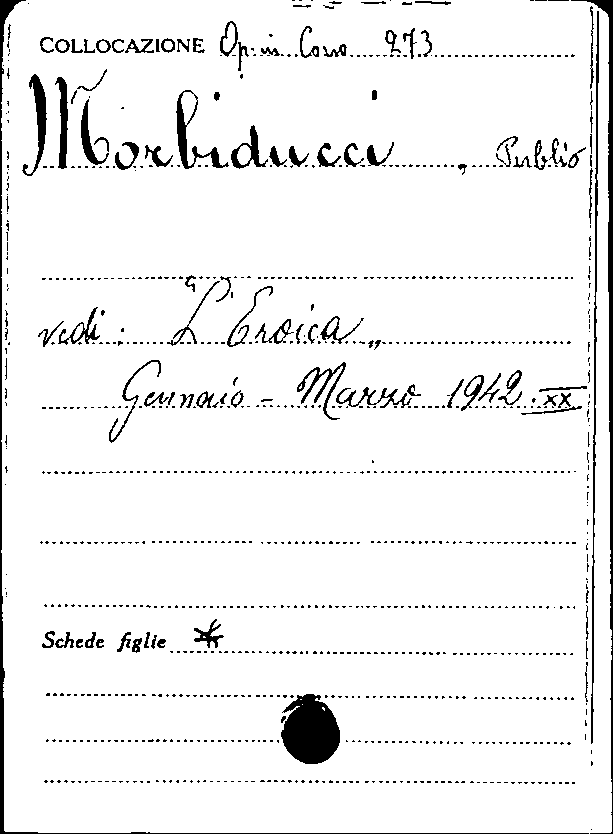 COLLOCAZIONE Op. in Corso 273
Morbiducci, Publio
vedi: "L'Eroica„
Gennaio - Marzo 1942. XX
Schede figlie *